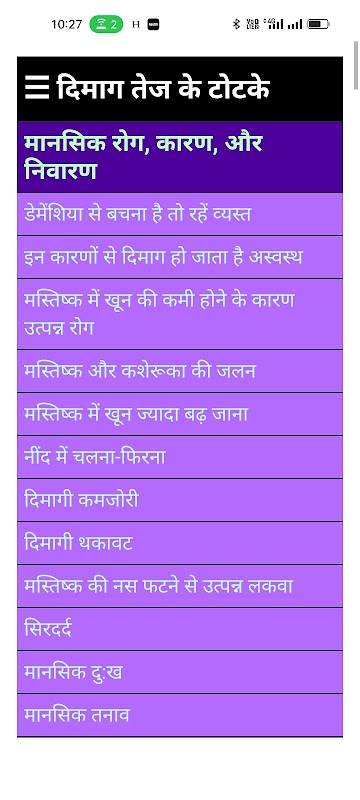 10:27 2 H
☰ दिमाग तेज के टोटके
मानसिक रोग, कारण, और
निवारण
डेमेंशिया से बचना है तो रहें व्यस्त
इन कारणों से दिमाग हो जाता है अस्वस्थ
मस्तिष्क में खून की कमी होने के कारण
उत्पन्न रोग
मस्तिष्क और कशेरूका की जलन
मस्तिष्क में खून ज्यादा बढ़ जाना
नींद में चलना-फिरना
दिमागी कमजोरी
दिमागी थकावट
मस्तिष्क की नस फटने से उत्पन्न लकवा
सिरदर्द
मानसिक दु:ख
मानसिक तनाव